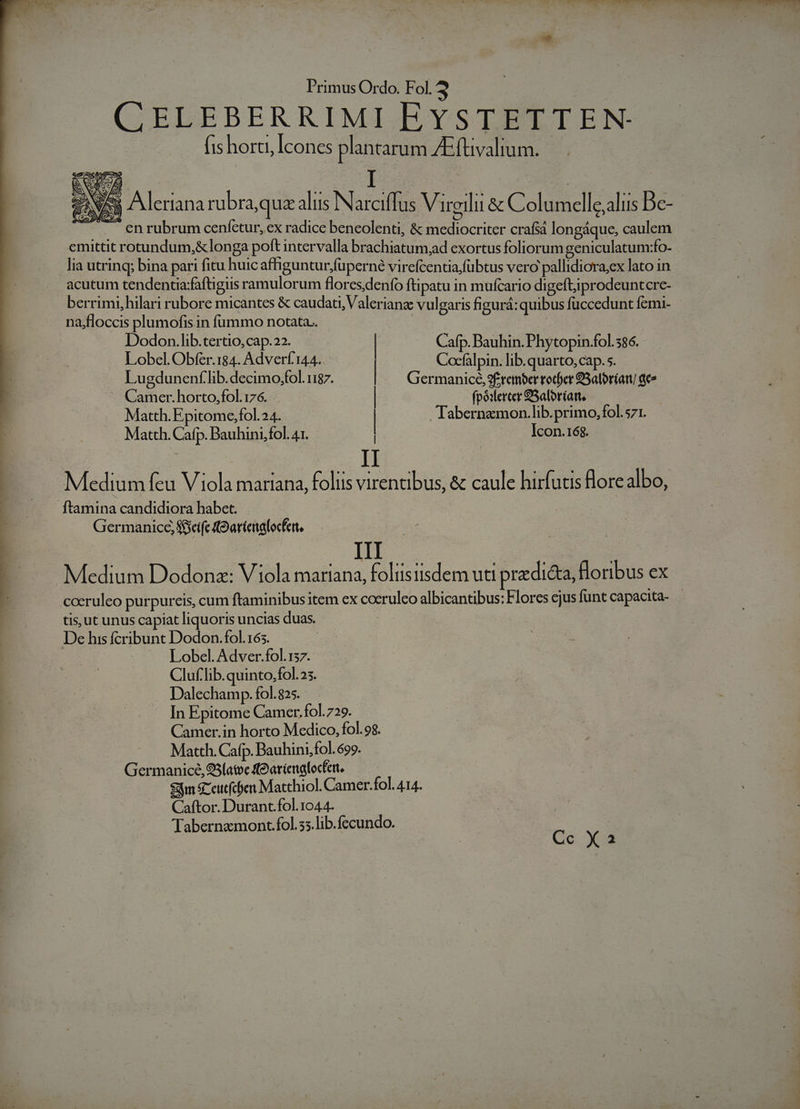 Primus Ordo. Fol. 3
CELEBERRIMI EYSTETTEN-
ſis horti, Icones plantarum Æſtivalium.
I
VAleriana rubra, quæ aliis Narciſſus Virgilii & Columellę, aliis Be-
en rubrum cenſetur, ex radice beneolenti, & mediocriter craſsâ longâque, caulem
emittit rotundum, & longa poſt intervalla brachiatum, ad exortus foliorum geniculatum: fo-
lia utrinq; bina pari ſitu huic affiguntur, ſupernè vireſcentia, ſubtus verò pallidiora, ex lato in
acutum tendentia: faſtigiis ramulorum flores, denſo ſtipatu in muſcario digeſti, prodeunt cre-
berrimi, hilari rubore micantes & caudati, Valerianæ vulgaris figurâ: quibus ſuccedunt ſemi-
na, floccis plumoſis in ſummo notata.
Dodon. lib. tertio, cap. 22.
Lobel. Obſer. 184. Adverſ. 144.
Lugdunenſ. lib. decimo, fol. 1187.
Camer. horto, fol. 176.
Matth. Epitome, fol. 24.
Matth. Caſp. Bauhini, fol. 41.
Caſp. Bauhin. Phytopin. fol. 586.
Cœſalpin. lib. quarto, cap. 5.
Germanicè, Frembder rother Baldrian/ ge-
ſpörlerter Baldrian.
Tabernæmon. lib. primo, fol. 571.
Icon. 168.
II
Medium ſeu Viola mariana, foliis virentibus, & caule hirſutis flore albo,
ſtamina candidiora habet.
Germanicè, Weiſe Marienglocken.
III
Medium Dodonæ: Viola mariana, foliis iisdem uti prædicta, floribus ex
cœruleo purpureis, cum ſtaminibus item ex cœruleo albicantibus: Flores ejus ſunt capacita-
tis, ut unus capiat liquoris uncias duas.
De his ſcribunt Dodon. fol. 163.
Lobel. Adver. fol. 137.
Cluſ. lib. quinto, fol. 25.
Dalechamp. fol. 825.
In Epitome Camer. fol. 729.
Camer. in horto Medico, fol. 98.
Matth. Caſp. Bauhini, fol. 699.
Germanicè, Blawe Marienglocken.
Im Teutſchen Matthiol. Camer. fol. 414.
Caſtor. Durant. fol. 1044.
Tabernæmont. fol. 55. lib. ſecundo.
Cc )( 2